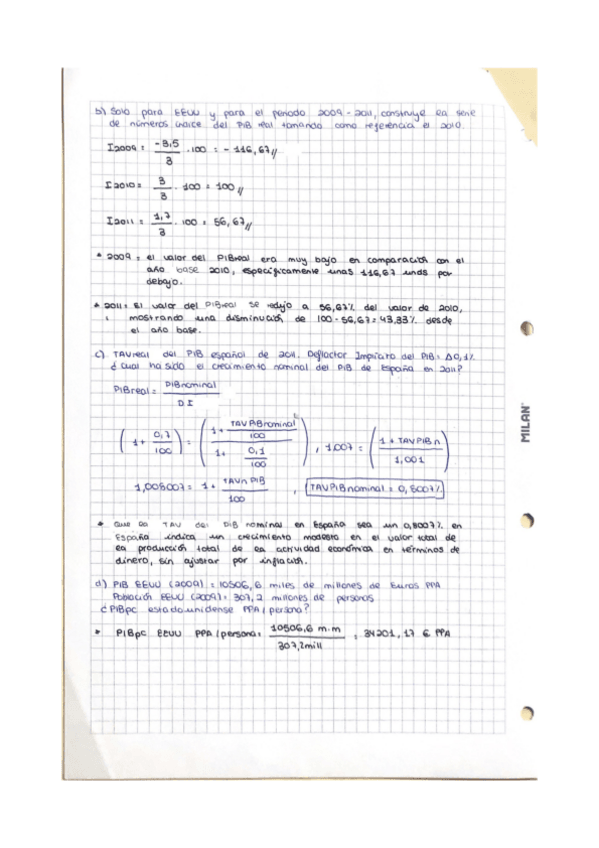 b) Solo para EEUU y para el periodo 2009-2011, construye la serie
de números índice del PIB real tomando como referencia el 2010.
I2009 = -3,5/3 · 100 = -116,67//
I2010 = 3/3 · 100 = 100//
I2011 = 1,7/3 · 100 = 56,67//
* 2009 = el valor del PIBreal era muy bajo en comparación con el
año base 2010, específicamente unas 116,67 unds por
debajo.
* 2011 = El valor del PIBreal se redujo a 56,67% del valor de 2010,
mostrando una disminución de 100-56,67=43,33% desde
el año base.
c) TAVreal del PIB español de 2011. Deflactor Implícito del PIB = Δ0,1%
¿Cual ha sido el crecimiento nominal del PIB de España en 2011?
PIBreal = PIBnominal / DI
(1 + 0,7/100) = (1 + TAVPIBnominal/100 / 1 + 0,1/100) , 1,007 = (1 + TAVPIBn / 1,001)
1,008007 = 1 + TAVn PIB/100 , TAVPIBnominal = 0,8007%
* Que la TAV del PIB nominal en España sea un 0,8007% en
España indica un crecimiento modesto en el valor total de
la producción total de la actividad económica en términos de
dinero, sin ajustar por inflación.
d) PIB EEUU (2009) = 10506,6 miles de millones de Euros PPA
Población EEUU (2009) = 307,2 millones de personas
¿PIBpc estadounidense PPA/persona?
* PIBpc EEUU PPA/persona = 10506,6 m.m / 307,2mill = 34201,17 € PPA
MILAN